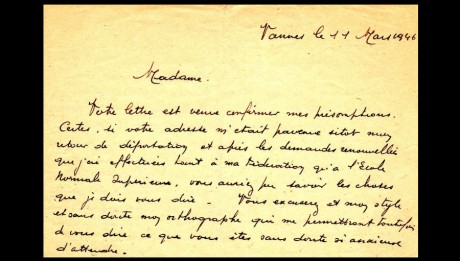 Vannes le 11 Mars 1946
Madame.
Votre lettre est venue confirmer mes présomptions.
Certes, si votre adresse m'était parvenue sitot mon
retour de déportation et après les demandes renouvellées
que j'ai effectuées tant à ma Fédération qu'à l'École
Normale Supérieure, vous auriez pu savoir les choses
que je dois vous dire - Vous excuserez et mon style
et sans doute mon orthographe qui me permettront toutefois
d vous dire ce que vous êtes sans doute si anxieuse
d'attendre.